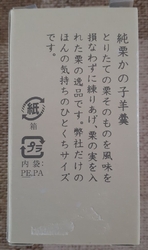 純栗かの子羊羹
とりたての栗そのものを風味を
損なわずに練りあげ、栗の実を入
れた栗の逸品です。弊社だけの
ほんの気持ちのひとくちサイズ
です。
紙
箱
プラ
内袋:
PE,PA